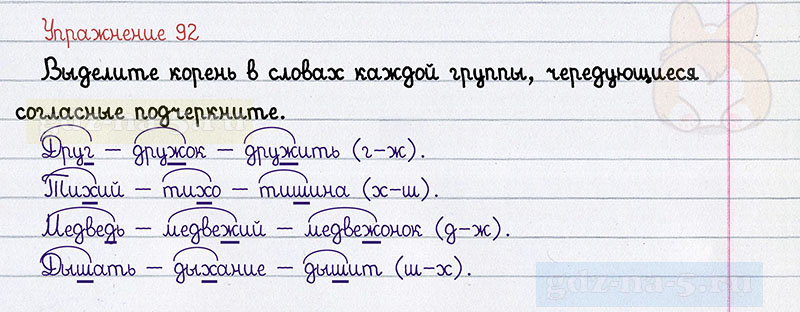 Упражнение 92
Выделите корень в словах каждой группы, чередующиеся
согласные подчеркните.
Друг – дружок – дружить (г-ж).
Тихий – тихо – тишина (х-ш).
Медведь – медвежий – медвежонок (д-ж).
Дышать – дыхание – дышит (ш-х).
gdz-na-5.ru
gdz-na-5.ru